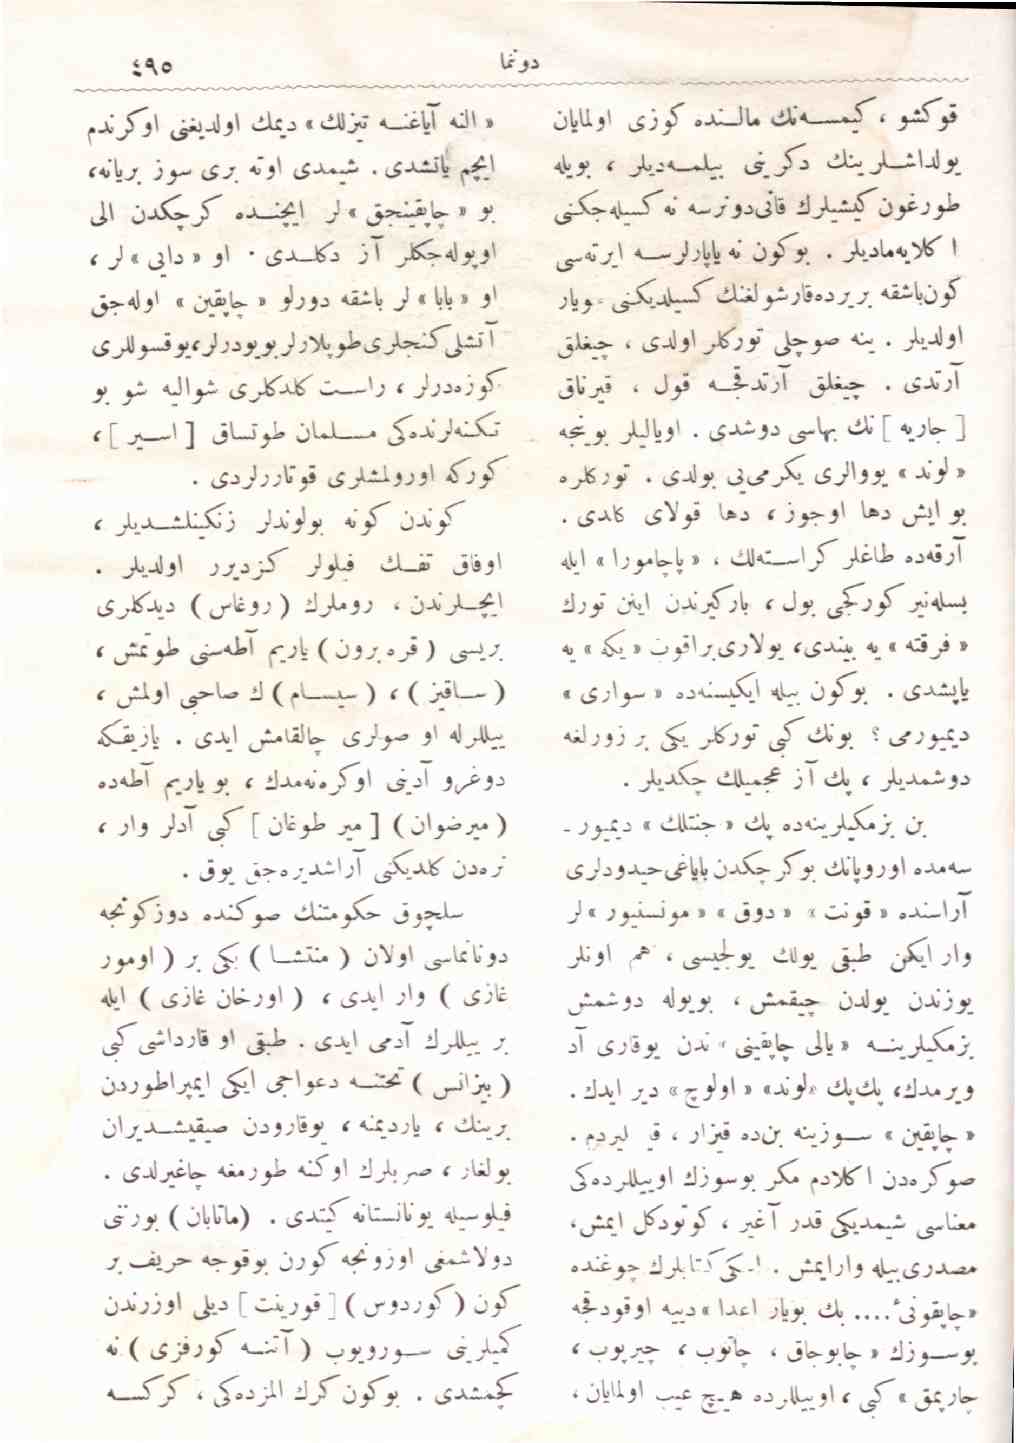 دونما
٤٩٥
قوكشو ، كيمسه‌نك مالنده كوزى اولمايان
يولداشلرينك دكرينى بيلمه‌ديلر ، بويله
طورغون كيشيلرك قانى‌دونرسه نه كسيله‌جكنى
ا كلايه‌ماديلر . بوكون نه ياپارلرسه ايرته‌سى
كون‌باشقه بريرده‌قارشولغنك كسيلديكنى دويار
اولديلر . ينه صوچلى توركلر اولدى ، چيغلق
آرتدى . چيغلق آرتدقجه قول ، قيرناق
[ جاريه ] نك بهاسى دوشدى . اوياليلر بوينجه
« لوند » يووالرى يكرمى‌يى بولدى . توركلره
بو ايش دها اوجوز ، دها قولاى كلدى .
آرقه‌ده طاغلر كراسته‌لك ، « پاچامورا » ايله
بسله‌نير كوركجى بول ، باركيرندن اينن تورك
« فرقته » يه بيندى، يولارى‌براقوب « يكه » يه
ياپشدى . بوكون بيله ايكيسنه‌ده « سوارى »
ديميورمى ؟ بونك كبى توركلر يكى بر زورلغه
دوشمديلر ، پك آز عجميلك چكديلر .
بن بزمكيلرينه‌ده پك « جنتلك » ديميور ـ
سه‌مده اوروپانك بوكر چكدن باياغى حيدودلرى
آراسنده « قونت » « دوق » « مونسنيور » لر
وار ايكن طبقى يولك يولجيسى ، هم اونلر
يوزندن يولدن چيقمش ، بويوله دوشمش
بزمكيلرينه « يالى چاپقينى » ندن يوقارى آد
ويرمدك، پك‌پك «لوند» « اولوج » دير ايدك .
« چاپقين » سوزينه بن‌ده قيزار ، ليردم .
صوكره‌دن ا كلادم مكر بوسوزك اوييللرده‌كى
معناسى شيمديكى قدر آغير ، كوتودكل ايمش،
مصدرى‌بيله وارايمش . اسكى كتابلرك چوغنده
«چاپقونئ .... بك بويار اعدا » دييه اوقودقجه
بوسوزك « چابوجاق ، چاتوب ، چيرپوب ،
چارپمق » كبى ، اوييللرده هيچ عيب اولمايان ،
« النه آياغنه تيزلك » ديمك اولديغنى اوكرندم
ايچم ياتشدى . شيمدى اوته برى سوز بريانه،
بو « چاپقينجق » لر ايچنده كرچكدن الى
اوپوله‌جكلر آز دكلدى . او « دايى » لر ،
او « بابا » لر باشقه دورلو « چاپقين » اوله‌جق
آتشلى‌كنجلرى‌طوپلارلربويودرلر،يوقسوللرى
كوزه‌درلر ، راست كلدكلرى شواليه شو بو
تكنه‌لرنده‌كى مسلمان طوتساق [ اسير ] ،
كوركه اورولمشلرى قوتارارلردى .
كوندن كونه بولوندلر زنكينلشديلر ،
اوفاق تفك فيلولر كزديرر اولديلر .
ايچلرندن ، روملرك ( روغاس ) ديدكلرى
بريسى ( قره برون ) ياريم آطه‌سنى طوتمش ،
( ساقيز ) ، ( سيسام ) ك صاحبى اولمش ،
ييللرله او صولرى چالقامش ايدى . يازيقكه
دوغرو آدينى اوكره‌نه‌مدك ، بو ياريم آطه‌ده
( ميرضوان ) [ مير طوغان ] كبى آدلر وار ،
نره‌دن كلديكنى آراشديره‌جق يوق .
سلچوق حكومتنك صوكنده دوزكونجه
دونانماسى اولان ( منتشا ) بكى بر ( اومور
غازى ) وار ايدى ، ( اورخان غازى ) ايله
بر ييللرك آدمى ايدى . طبقى او قارداشى كبى
( بيزانس ) تختنه دعواجى ايكى ايمپراطوردن
برينك ، يارديمنه ، يوقارودن صيقيشديران
بولغار ، صربلرك اوكنه طورمغه چاغيرلدى .
فيلوسيله يونانستانه كيتدى . (ماتابان) بورننى
دولاشمغى اوزونجه كورن بوقوجه حريف بر
كون (كوردوس) [ قورينت ] ديلى اوزرندن
كميلرينى سورويوب ( آتنه كورفزى ) نه
كچمشدى . بوكون كرك المزده‌كى ، كركسه